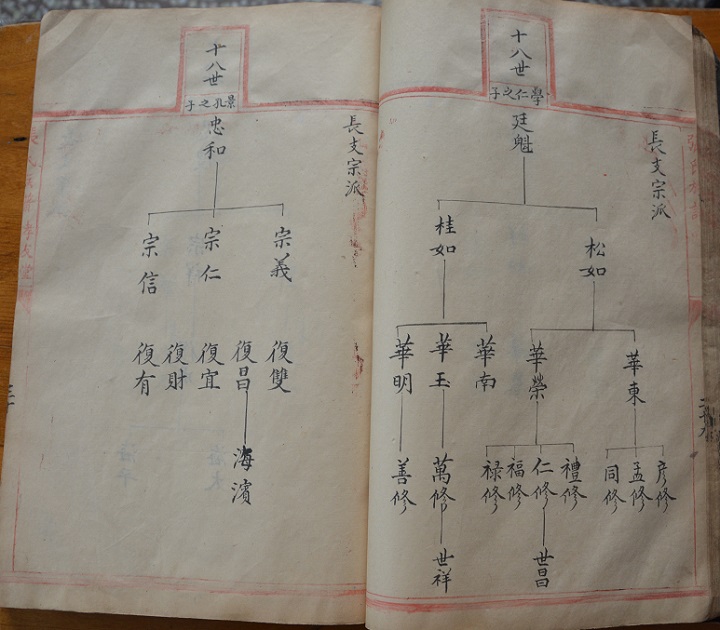 十八世
學仁之子
長支宗派
廷魁
松如
桂如
華東
華榮
華南
華玉
華明
彦修
孟修
同修
禮修
仁修
福修
禄修
萬修
善修
世昌
世祥
十八世
景孔之子
長支宗派
忠和
宗義
宗仁
宗信
復雙
復昌
復宜
復財
復有
海濱